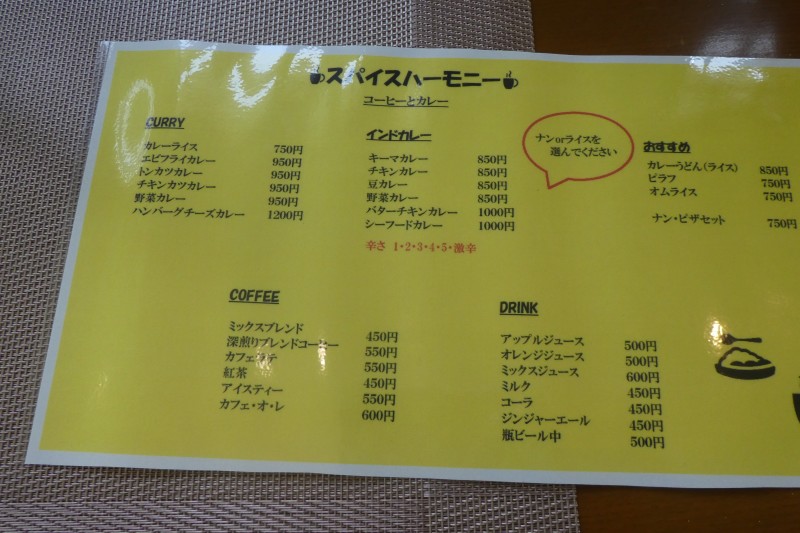 スパイスハーモニー
コーヒーとカレー
CURRY
カレーライス 750円
エビフライカレー 950円
トンカツカレー 950円
チキンカツカレー 950円
野菜カレー 950円
ハンバーグチーズカレー 1200円
インドカレー
キーマカレー 850円
チキンカレー 850円
豆カレー 850円
野菜カレー 850円
バターチキンカレー 1000円
シーフードカレー 1000円
辛さ 1・2・3・4・5・激辛
ナンorライスを
選んでください
おすすめ
カレーうどん(ライス) 850円
ピラフ 750円
オムライス 750円
ナン・ピザセット 750円
COFFEE
ミックスブレンド 450円
深煎りブレンドコーヒー 550円
カフェラテ 550円
紅茶 450円
アイスティー 550円
カフェ・オ・レ 600円
DRINK
アップルジュース 500円
オレンジジュース 500円
ミックスジュース 600円
ミルク 450円
コーラ 450円
ジンジャーエール 450円
瓶ビール中 500円